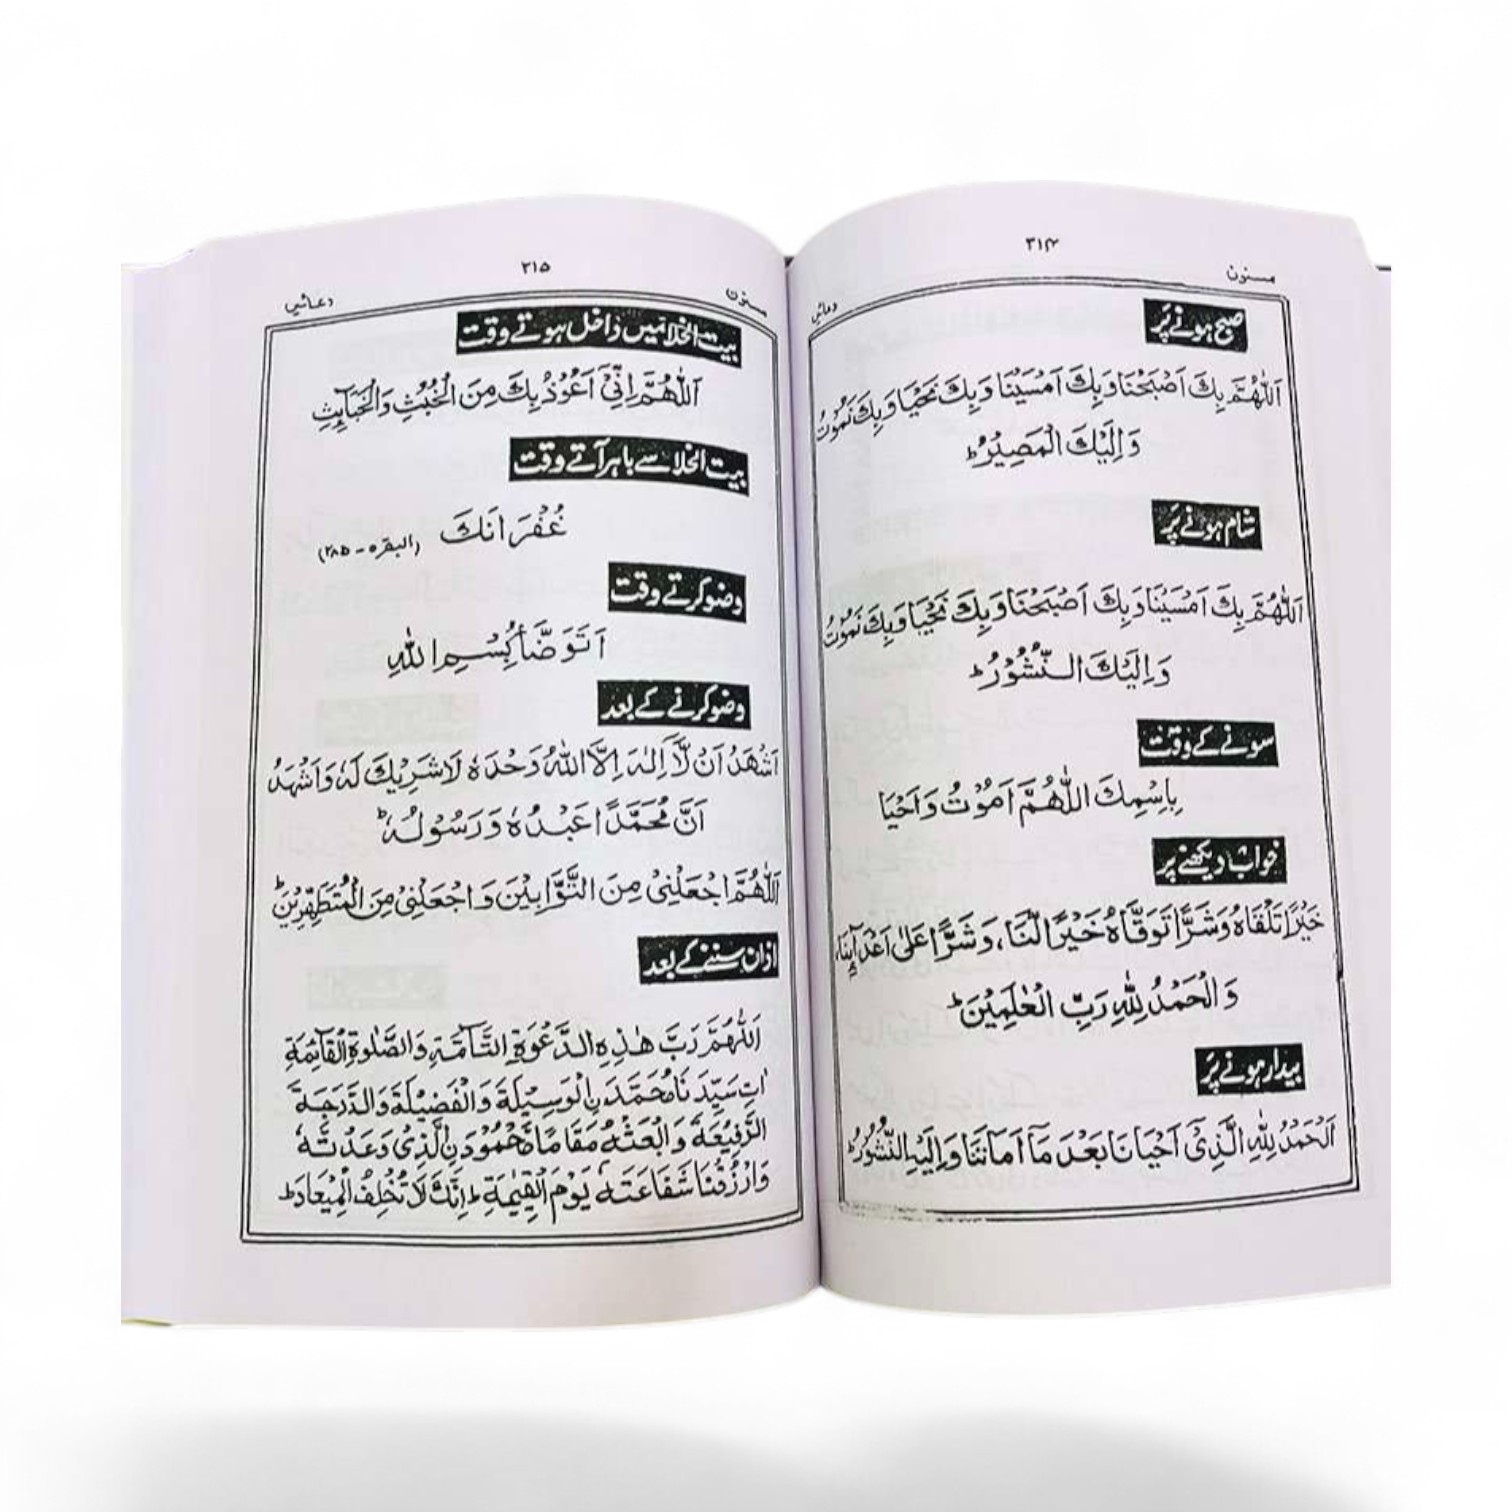 ۳۱۴
مسنون دعائیں
صبح ہونے پر
اَللّٰهُمَّ بِكَ اَصْبَحْنَا وَبِكَ اَمْسَيْنَا وَبِكَ نَحْيَا وَبِكَ نَمُوْتُ
وَاِلَيْكَ الْمَصِيْرُ ط
شام ہونے پر
اَللّٰهُمَّ بِكَ اَمْسَيْنَا وَبِكَ اَصْبَحْنَا وَبِكَ نَحْيَا وَبِكَ نَمُوْتُ
وَاِلَيْكَ النُّشُوْرُ ط
سونے کے وقت
بِاسْمِكَ اللّٰهُمَّ اَمُوْتُ وَاَحْيَا
خواب دیکھنے پر
خَيْرًا تَلْقَاهُ وَشَرًّا تَوَقَّاهُ خَيْرًا لَّنَا، وَشَرًّا عَلٰى اَعْدَآئِنَا،
وَالْحَمْدُ لِلّٰهِ رَبِّ الْعٰلَمِيْنَ ط
بیدار ہونے پر
اَلْحَمْدُ لِلّٰهِ الَّذِىْ اَحْيَانَا بَعْدَ مَآ اَمَاتَنَا وَاِلَيْهِ النُّشُوْرُ ط
۲۱۵
مسنون دعائیں
بیت الخلا میں داخل ہوتے وقت
اَللّٰهُمَّ اِنِّىْ اَعُوْذُ بِكَ مِنَ الْخُبُثِ وَالْخَبَآئِثِ
بیت الخلا سے باہر آتے وقت
غُفْرَانَكَ (البقرہ - ۲۸۵)
وضو کرتے وقت
اَتَوَضَّأُ بِسْمِ اللّٰهِ
وضو کرنے کے بعد
اَشْهَدُ اَنْ لَّآ اِلٰهَ اِلَّا اللّٰهُ وَحْدَهٗ لَا شَرِيْكَ لَهٗ وَاَشْهَدُ
اَنَّ مُحَمَّدًا عَبْدُهٗ وَرَسُوْلُهٗ ط
اَللّٰهُمَّ اجْعَلْنِىْ مِنَ التَّوَّابِيْنَ وَاجْعَلْنِىْ مِنَ الْمُتَطَهِّرِيْنَ ط
اذان سننے کے بعد
اَللّٰهُمَّ رَبَّ هٰذِهِ الدَّعْوَةِ التَّآمَّةِ وَالصَّلٰوةِ الْقَآئِمَةِ
اٰتِ سَيِّدَنَا مُحَمَّدَنِ الْوَسِيْلَةَ وَالْفَضِيْلَةَ وَالدَّرَجَةَ
الرَّفِيْعَةَ وَابْعَثْهُ مَقَامًا مَّحْمُوْدَنِ الَّذِىْ وَعَدْتَّهٗ
وَارْزُقْنَا شَفَاعَتَهٗ يَوْمَ الْقِيٰمَةِ ط اِنَّكَ لَا تُخْلِفُ الْمِيْعَادَ ط